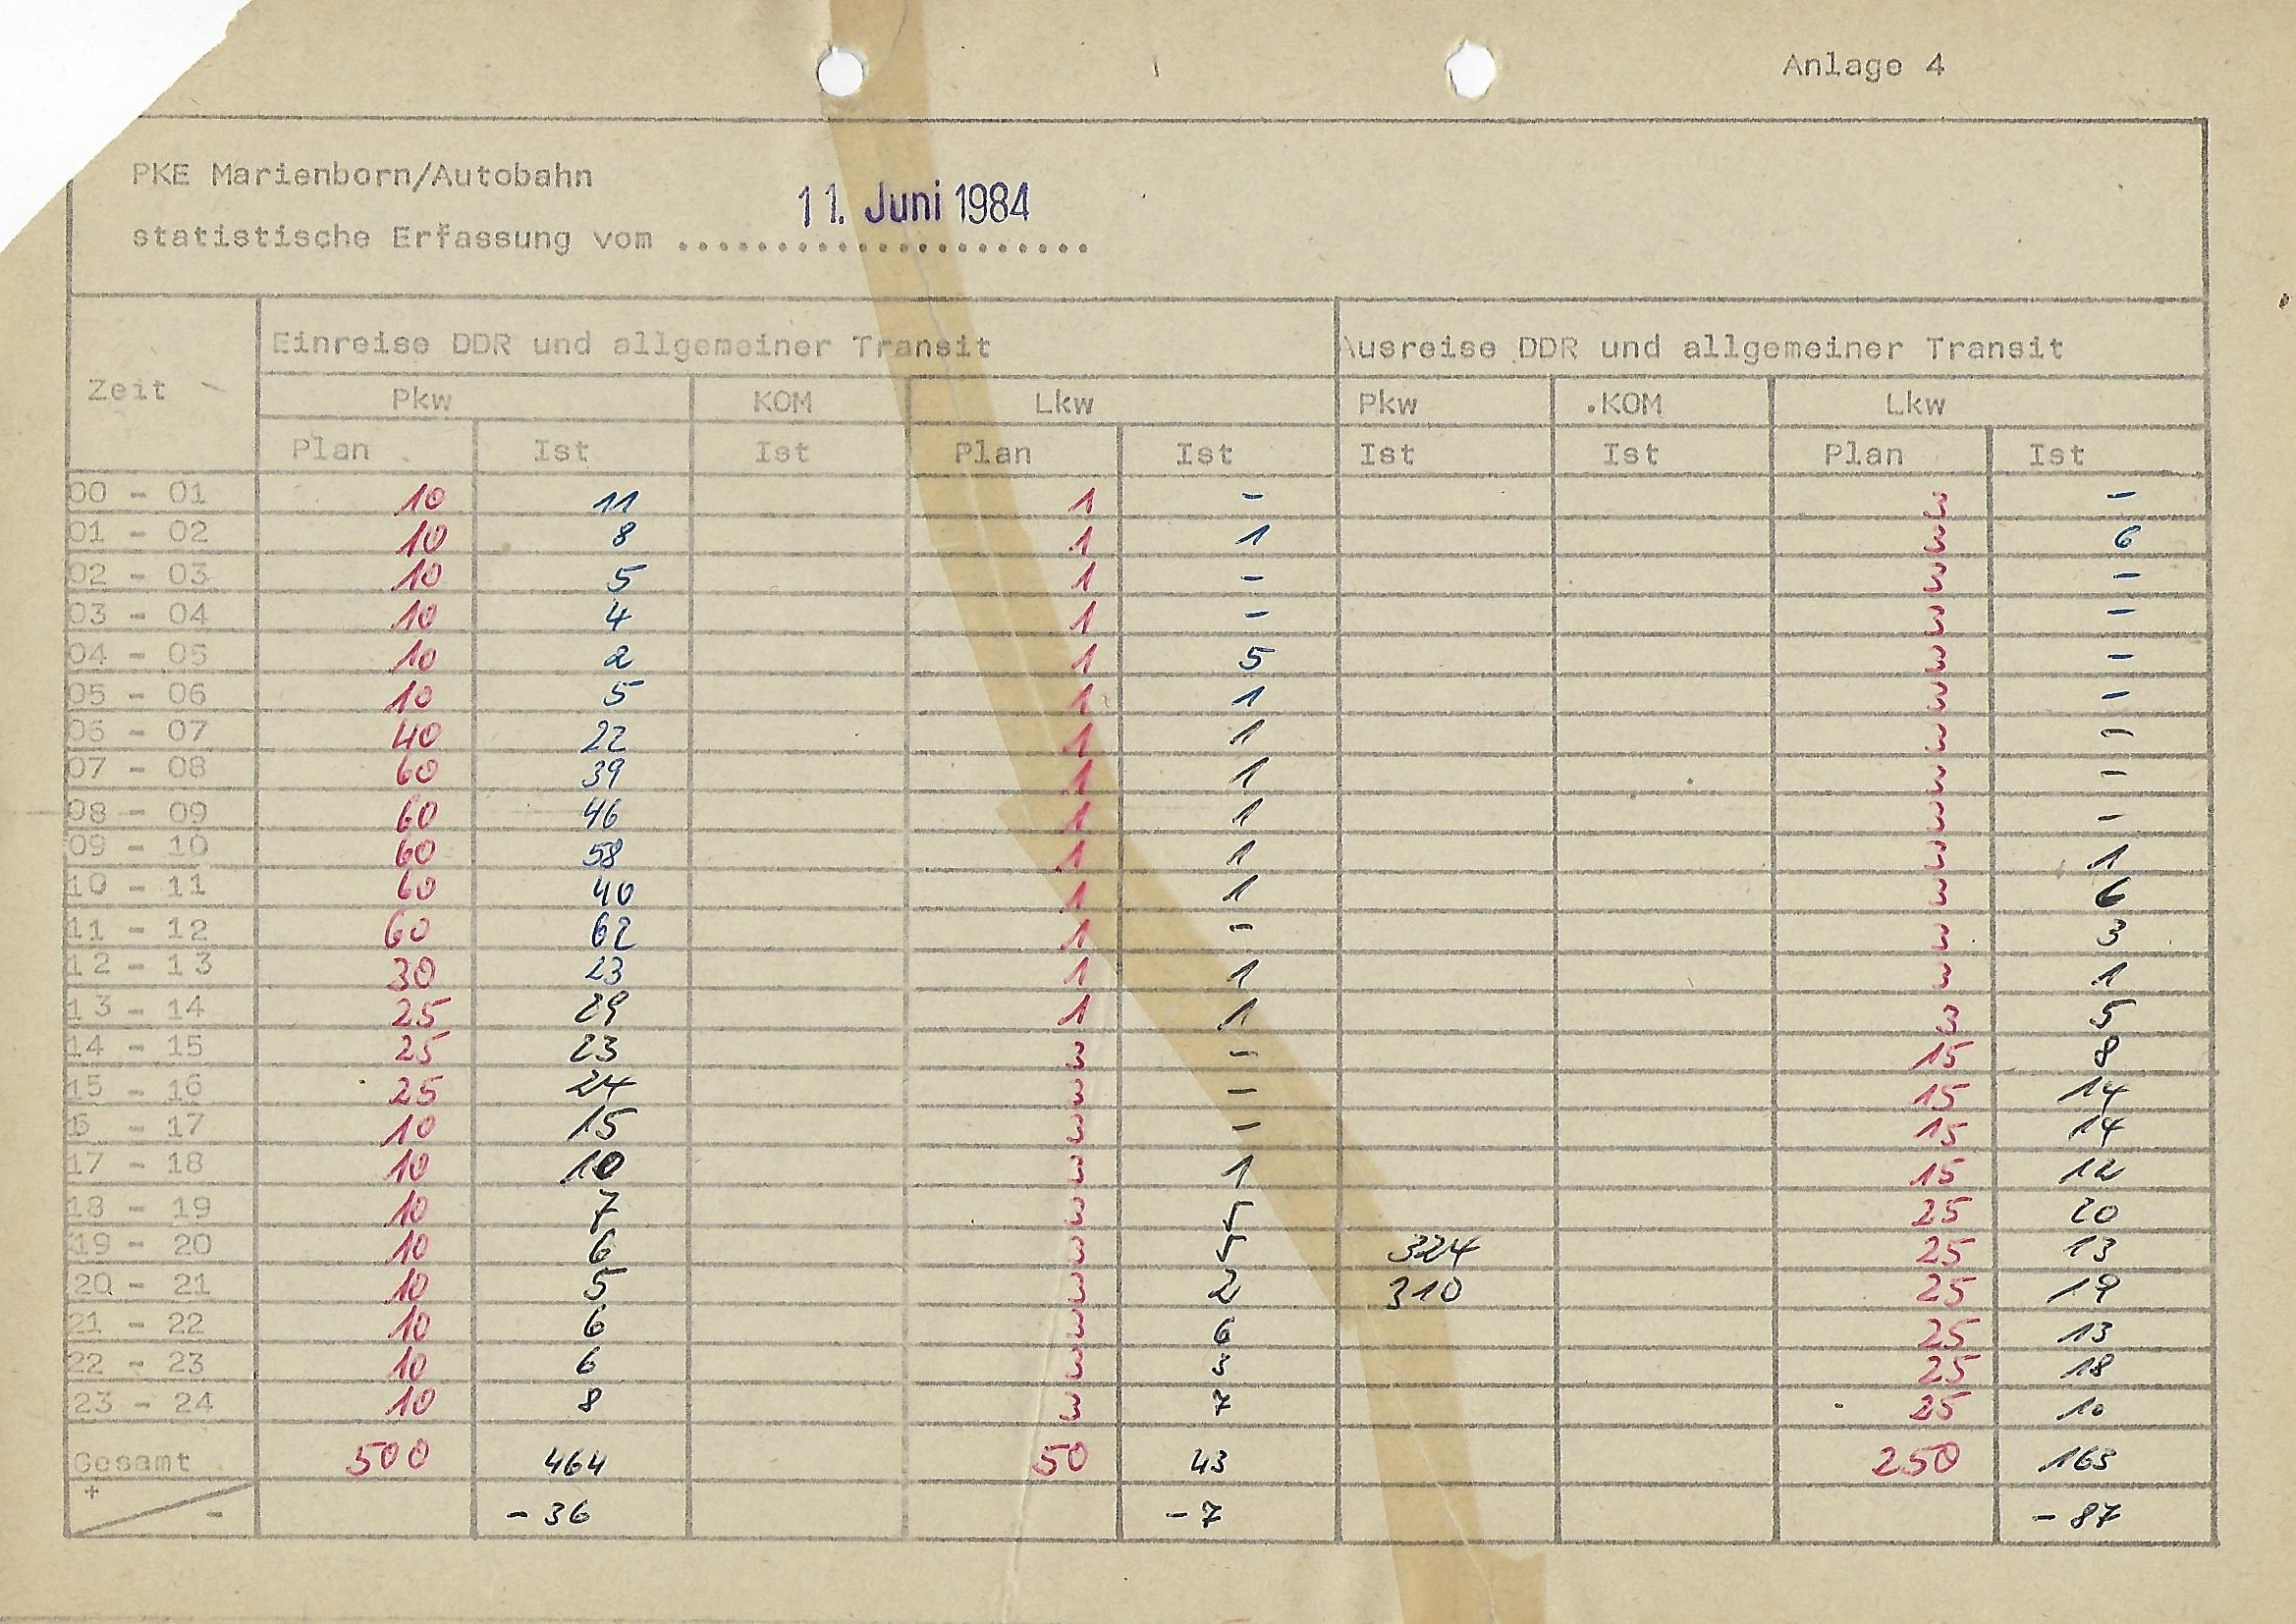 Anlage 4
PKE Marienborn/Autobahn
11. Juni 1984
statistische Erfassung vom .....................
Zeit Einreise DDR und allgemeiner Transit Ausreise DDR und allgemeiner Transit
Pkw KOM Lkw Pkw .KOM Lkw
Plan Ist Ist Plan Ist Ist Ist Plan Ist
00 - 01 10 11 1 - 3 -
01 - 02 10 8 1 1 3 6
02 - 03 10 5 1 - 3 -
03 - 04 10 4 1 - 3 -
04 - 05 10 2 1 5 3 -
05 - 06 10 5 1 1 3 -
06 - 07 40 22 1 1 3 -
07 - 08 60 39 1 1 3 -
08 - 09 60 46 1 1 3 -
09 - 10 60 58 1 1 3 1
10 - 11 60 40 1 1 3 6
11 - 12 60 62 1 - 3 3
12 - 13 30 23 1 1 3 1
13 - 14 25 29 1 1 3 5
14 - 15 25 23 3 - 15 8
15 - 16 25 24 3 - 15 14
16 - 17 10 15 3 - 15 14
17 - 18 10 10 3 1 15 12
18 - 19 10 7 3 5 25 20
19 - 20 10 6 3 5 324 25 13
20 - 21 10 5 3 2 310 25 19
21 - 22 10 6 3 6 25 13
22 - 23 10 6 3 3 25 18
23 - 24 10 8 3 7 25 10
Gesamt 500 464 50 43 250 163
+ - - 36 - 7 - 87